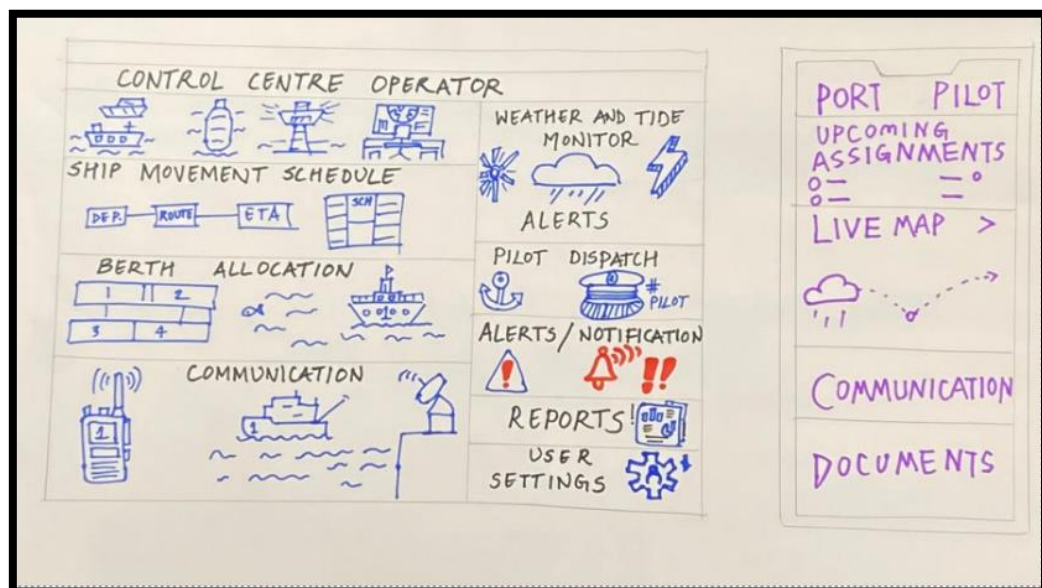 CONTROL CENTRE OPERATOR
SHIP MOVEMENT SCHEDULE
DEP.
ROUTE
ETA
SCH
BERTH ALLOCATION
1
2
3
4
1
COMMUNICATION
1
1
WEATHER AND TIDE
MONITOR
ALERTS
PILOT DISPATCH
#
PILOT
ALERTS/NOTIFICATION
!
!!
REPORTS
USER
SETTINGS
PORT PILOT
UPCOMING
ASSIGNMENTS
LIVE MAP >
COMMUNICATION
DOCUMENTS